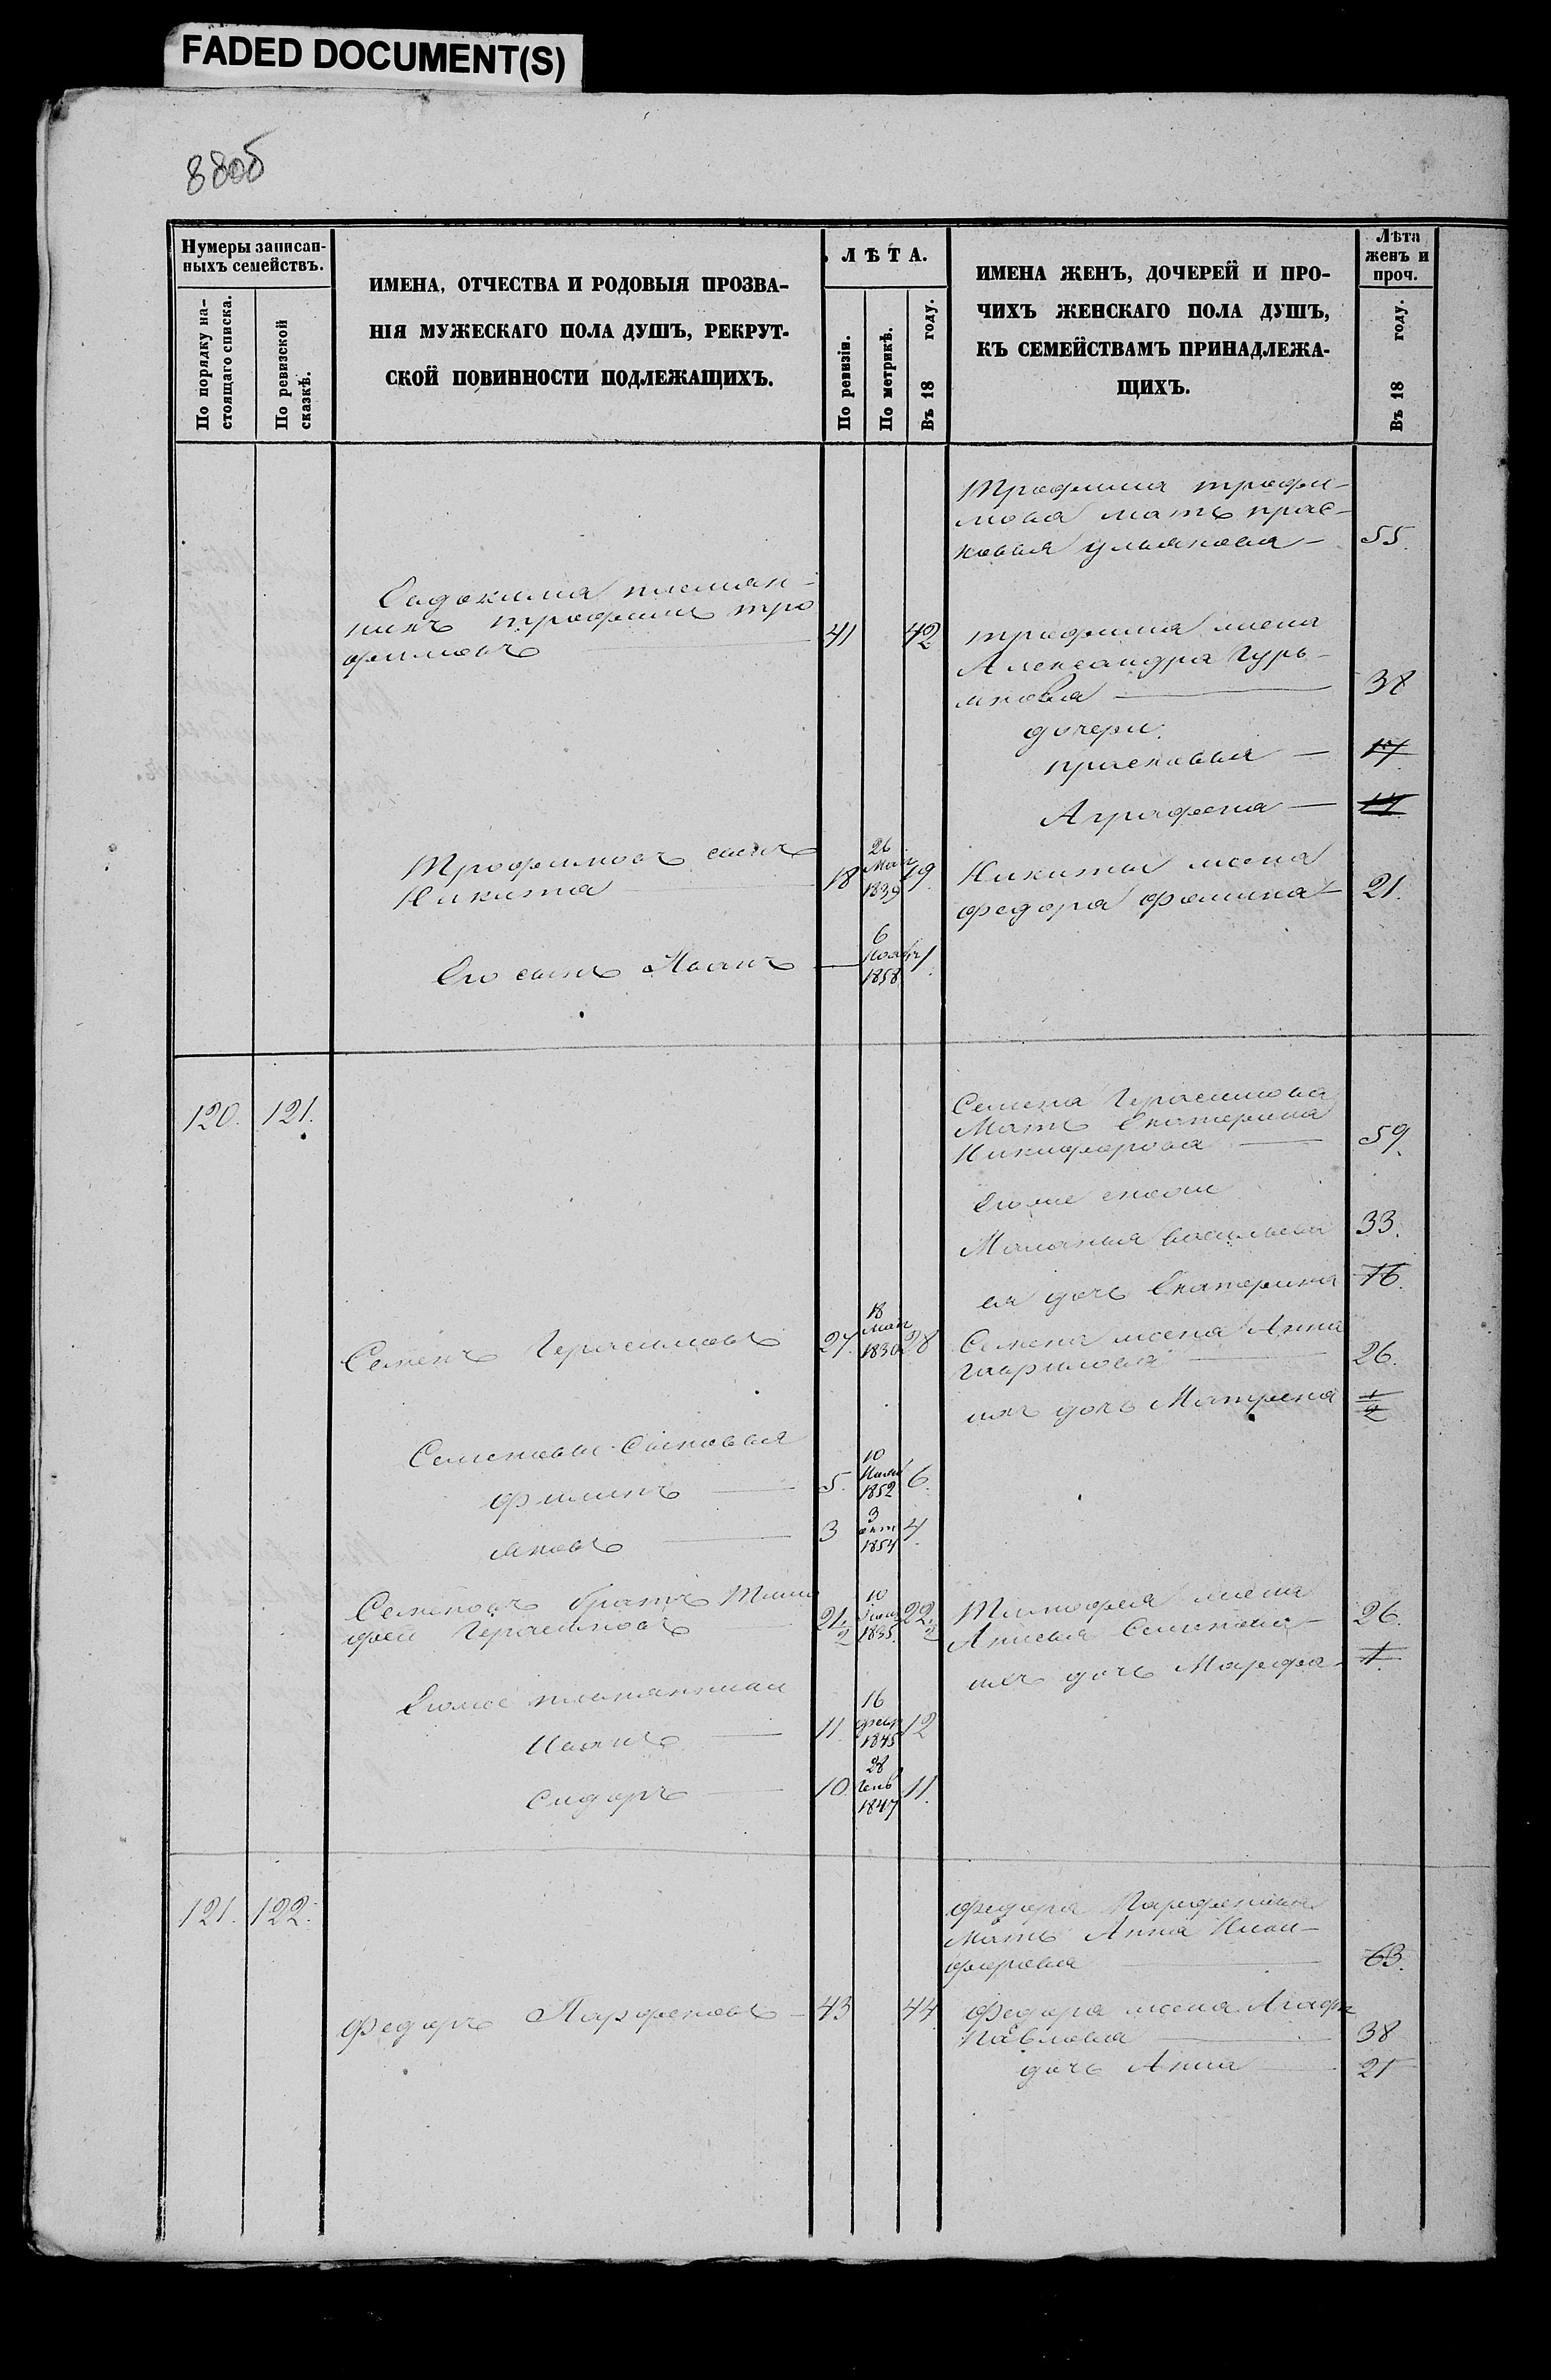 FADED DOCUMENT(S)
88об
Нумеры записан-
ныхъ семействъ.
По порядку на-
стоящаго списка.
По ревизской
сказкѣ.
ИМЕНА, ОТЧЕСТВА И РОДОВЫЯ ПРОЗВА-
НІЯ МУЖЕСКАГО ПОЛА ДУШЪ, РЕКРУТ-
СКОЙ ПОВИННОСТИ ПОДЛЕЖАЩИХЪ.
ЛѢТА.
По ревизіи.
По метрикѣ.
Въ 18 году.
ИМЕНА ЖЕНЪ, ДОЧЕРЕЙ И ПРО-
ЧИХЪ ЖЕНСКАГО ПОЛА ДУШЪ,
КЪ СЕМЕЙСТВАМЪ ПРИНАДЛЕЖА-
ЩИХЪ.
Лѣта
женъ и
проч.
Въ 18 году.
Трофима трофи-
мова мать прас-
ковья ульянова — 55.
Евдокима племян-
никъ трофимъ тро
фимовъ 41 42
трофима жена
Александра Гурь-
янова — 38
дочери:
прасковья — 17
Аграфена — 14
Трофимовъ сынъ
Никита 18 26 Мая 1839 19
Никиты жена
федора фомина — 21.
Его сынъ Иванъ — 6 Нояб 1858 1
120. 121.
Семена Герасимова
Мать Екатерина
Никифорова — 59.
Его же
Маланья васильева 33.
ея дочь Екатерина 16.
Семенъ Герасимовъ 27. 18 Мая 1830 28
Семена жена Анна
гаврилова — 26.
ихъ дочь Матрена
Семеновы Сыновья
филипъ — 5. 10 1852 6.
яковъ — 3 3 окт 1854 4
Семеновъ братъ Тимо
фей Герасимовъ — 21 1/2 10 1835. 22 1/2
Тимофея жена
Анисья Семенова — 26.
ихъ дочь Марфа — 1.
Его же племянники
Иванъ — 11 16 февр 1845 12
Сидоръ — 10. 28 Генв 1847 11.
121. 122.
федора Парфенова
Мать Анна Ники-
форова — 63.
федоръ Парфеновъ — 43 44
Федора жена Агафья
павлова — 38
дочь Анна — 21